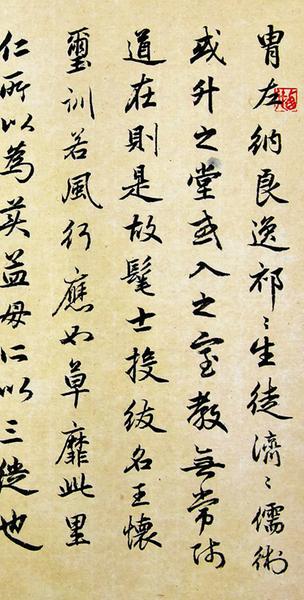 胄左納良逸祁〻生徒濟〻儒術
或升之堂或入之室教無常師
道在則是故髦士投紱名王懷
璽訓若風行應如草靡此里
仁所以為美孟母所以三徙也